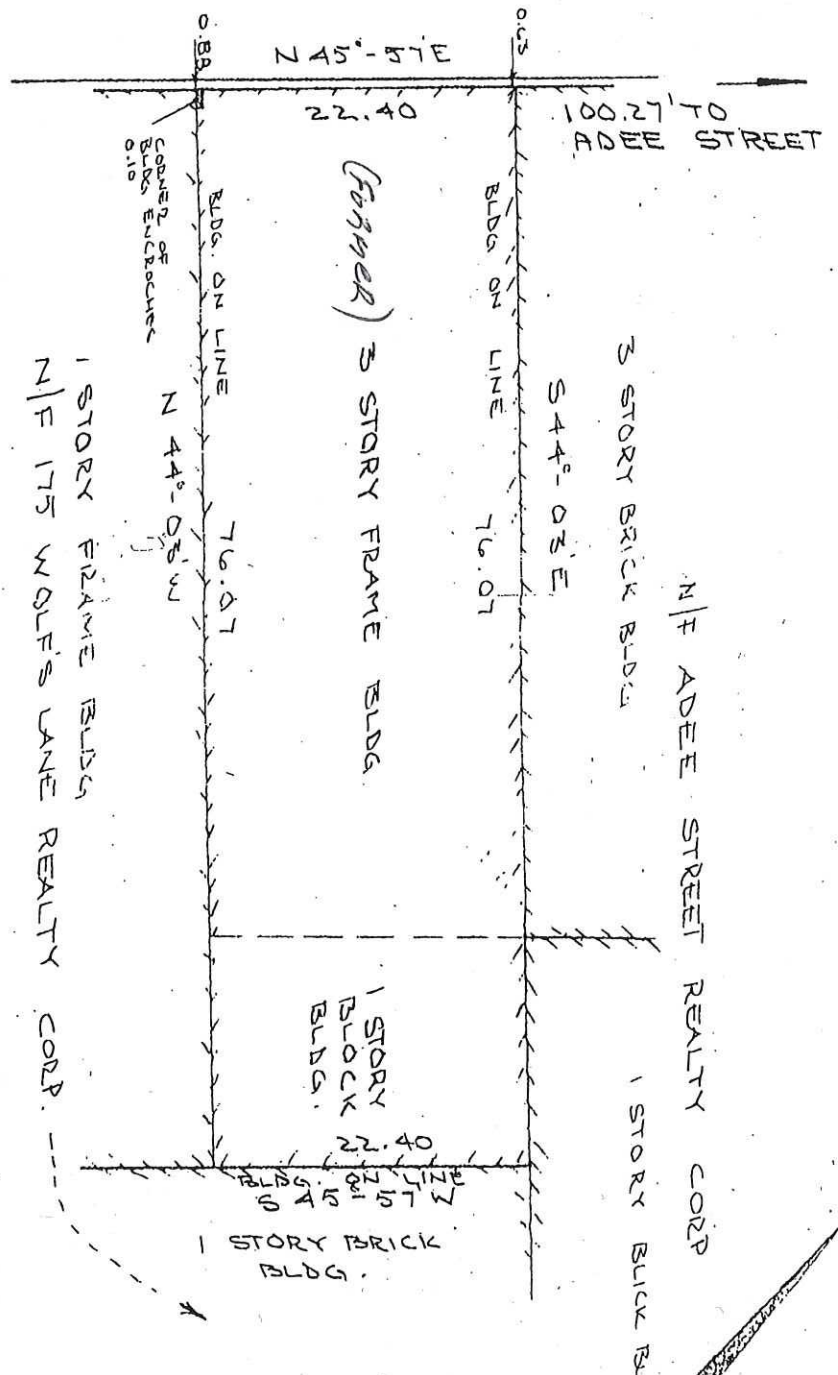 0.88
N 45°-57'E
0.63
22.40
100.27' TO
ADEE STREET
CORNER OF
BLDG ENCROCHES
0.10
BLDG. ON LINE
(FORMER) 3 STORY FRAME BLDG
BLDG ON LINE
3 STORY BRICK BLDG
N/F ADEE STREET REALTY CORP
S 44°-03'E
76.07
N 44°-03'W
76.07
1 STORY FRAME BLDG
N/F 175 WOLF'S LANE REALTY CORP.
1 STORY
BLOCK
BLDG.
1 STORY BLICK BL
22.40
BLDG. ON LINE
S 45°-57'W
1 STORY BRICK
BLDG.